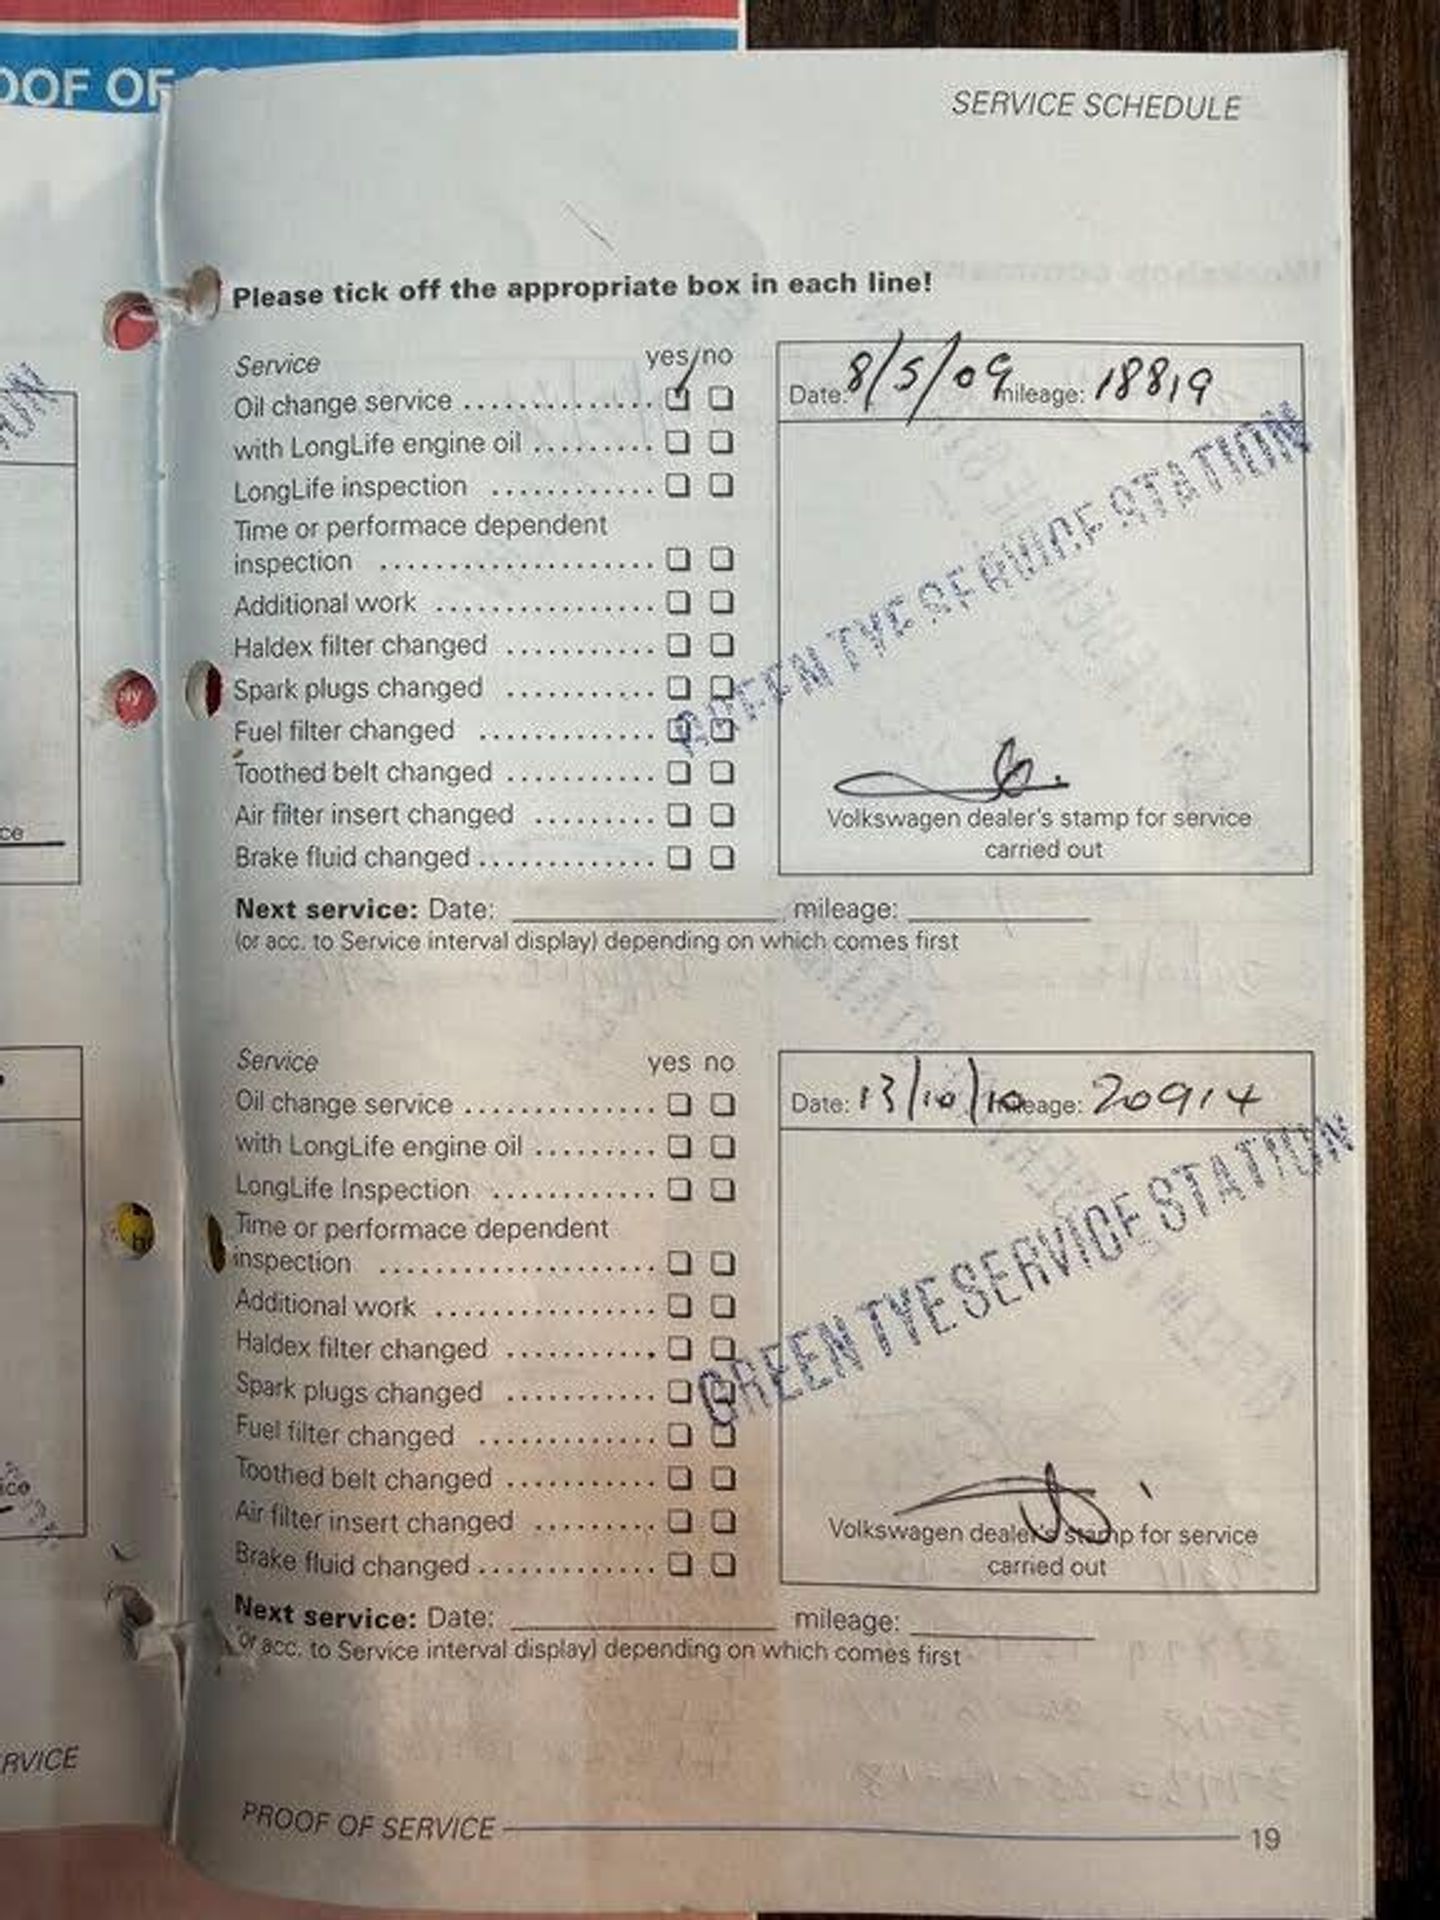 SERVICE SCHEDULE
Please tick off the appropriate box in each line!
Service yes/no
Oil change service
with LongLife engine oil
LongLife inspection
Time or performace dependent
inspection
Additional work
Haldex filter changed
Spark plugs changed
Fuel filter changed
Toothed belt changed
Air filter insert changed
Brake fluid changed
Date: 8/5/09 mileage: 18819
GREEN TYE SERVICE STATION
Volkswagen dealer's stamp for service
carried out
Next service: Date: mileage:
(or acc. to Service interval display) depending on which comes first
Service yes no
Oil change service
with LongLife engine oil
LongLife Inspection
Time or performace dependent
inspection
Additional work
Haldex filter changed
Spark plugs changed
Fuel filter changed
Toothed belt changed
Air filter insert changed
Brake fluid changed
Date: 13/10/10 mileage: 20914
GREEN TYE SERVICE STATION
Volkswagen dealer's stamp for service
carried out
Next service: Date: mileage:
(or acc. to Service interval display) depending on which comes first
PROOF OF SERVICE 19